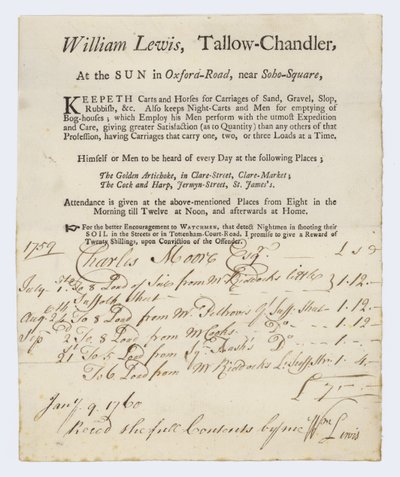 William Lewis, Tallow-Chandler,
At the SUN in Oxford-Road, near Soho-Square,
KEEPETH Carts and Horses for Carriages of Sand, Gravel, Slop,
Rubbish, &c. Also keeps Night-Carts and Men for emptying of
Bog-houses; which Employ his Men perform with the utmost Expedition
and Care, giving greater Satisfaction (as to Quantity) than any others of that
Profession, having Carriages that carry one, two, or three Loads at a Time.
Himself or Men to be heard of every Day at the following Places;
The Golden Artichoke, in Clare-Street, Clare-Market;
The Cock and Harp, Jermyn-Street, St. James's.
Attendance is given at the above-mentioned Places from Eight in the
Morning till Twelve at Noon, and afterwards at Home.
☞ For the better Encouragement to WATCHMEN, that detect Nightmen in shooting their
SOIL in the Streets or in Tottenham-Court-Road, I promise to give a Reward of
Twenty Shillings, upon Conviction of the Offender.
1759 Charles Moore Esqr. L s d
July To 8 Load of from Mr Riddocks little 1.12.
Suffolk Street
Aug 24 To 8 Load from Mr Suff. Street 1.12
Sep 2d To 8 Load from Mr Cooks Do 1.12
21 To 5 Load from Do 1.
To 6 Load from Mr Riddocks L. Suff. Str. 1.4.
£ 7
Jany 9. 1760
Recd the full Contents by me Wm Lewis